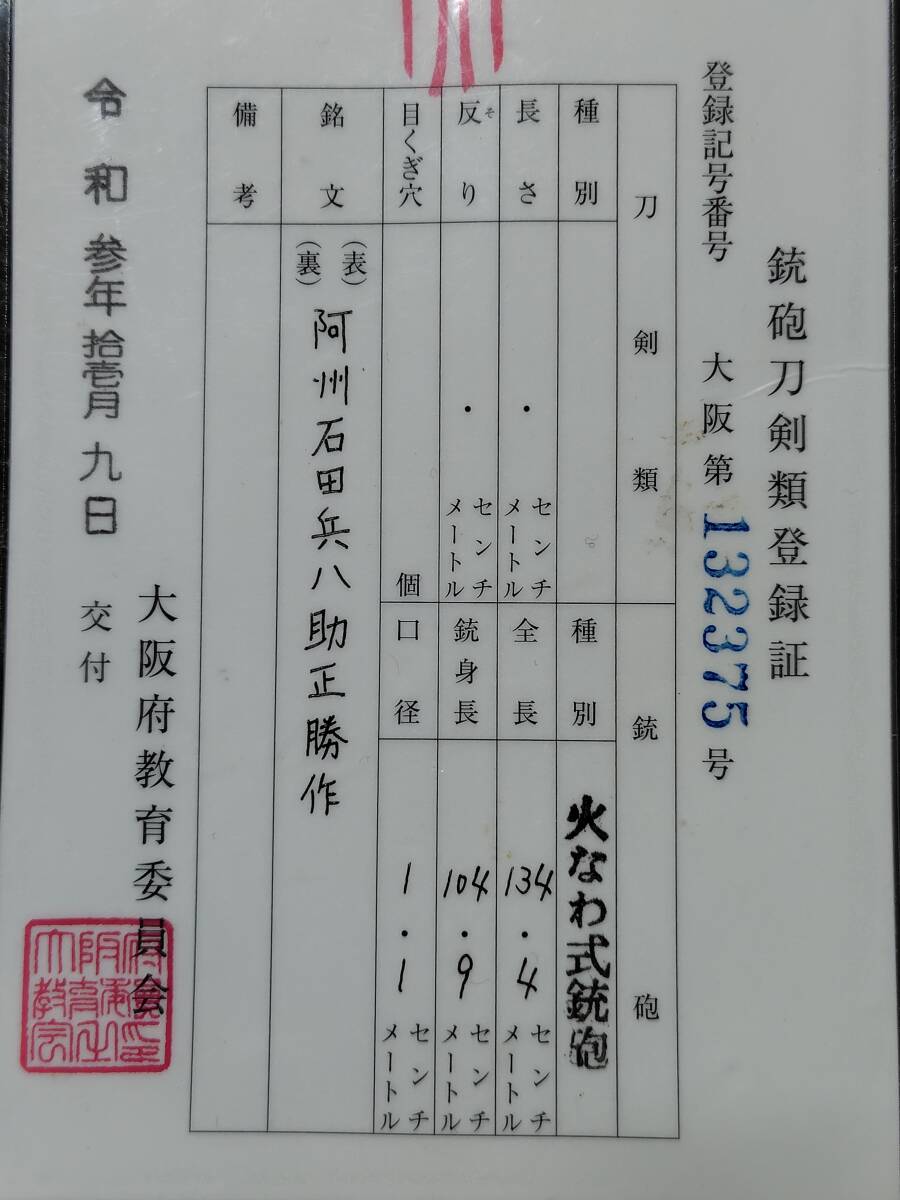 銃砲刀剣類登録証
登録記号番号 大阪第132375号
刀剣類
種別
長さ ・ センチメートル
反り ・ センチメートル
そ
目くぎ穴 個
銃砲
種別 火なわ式銃砲
全長 134・4 センチメートル
銃身長 104・9 センチメートル
口径 1・1 センチメートル
銘文 (表) 阿州石田兵八助正勝作
(裏)
備考
大阪府教育委員会
令和参年拾壱月九日 交付